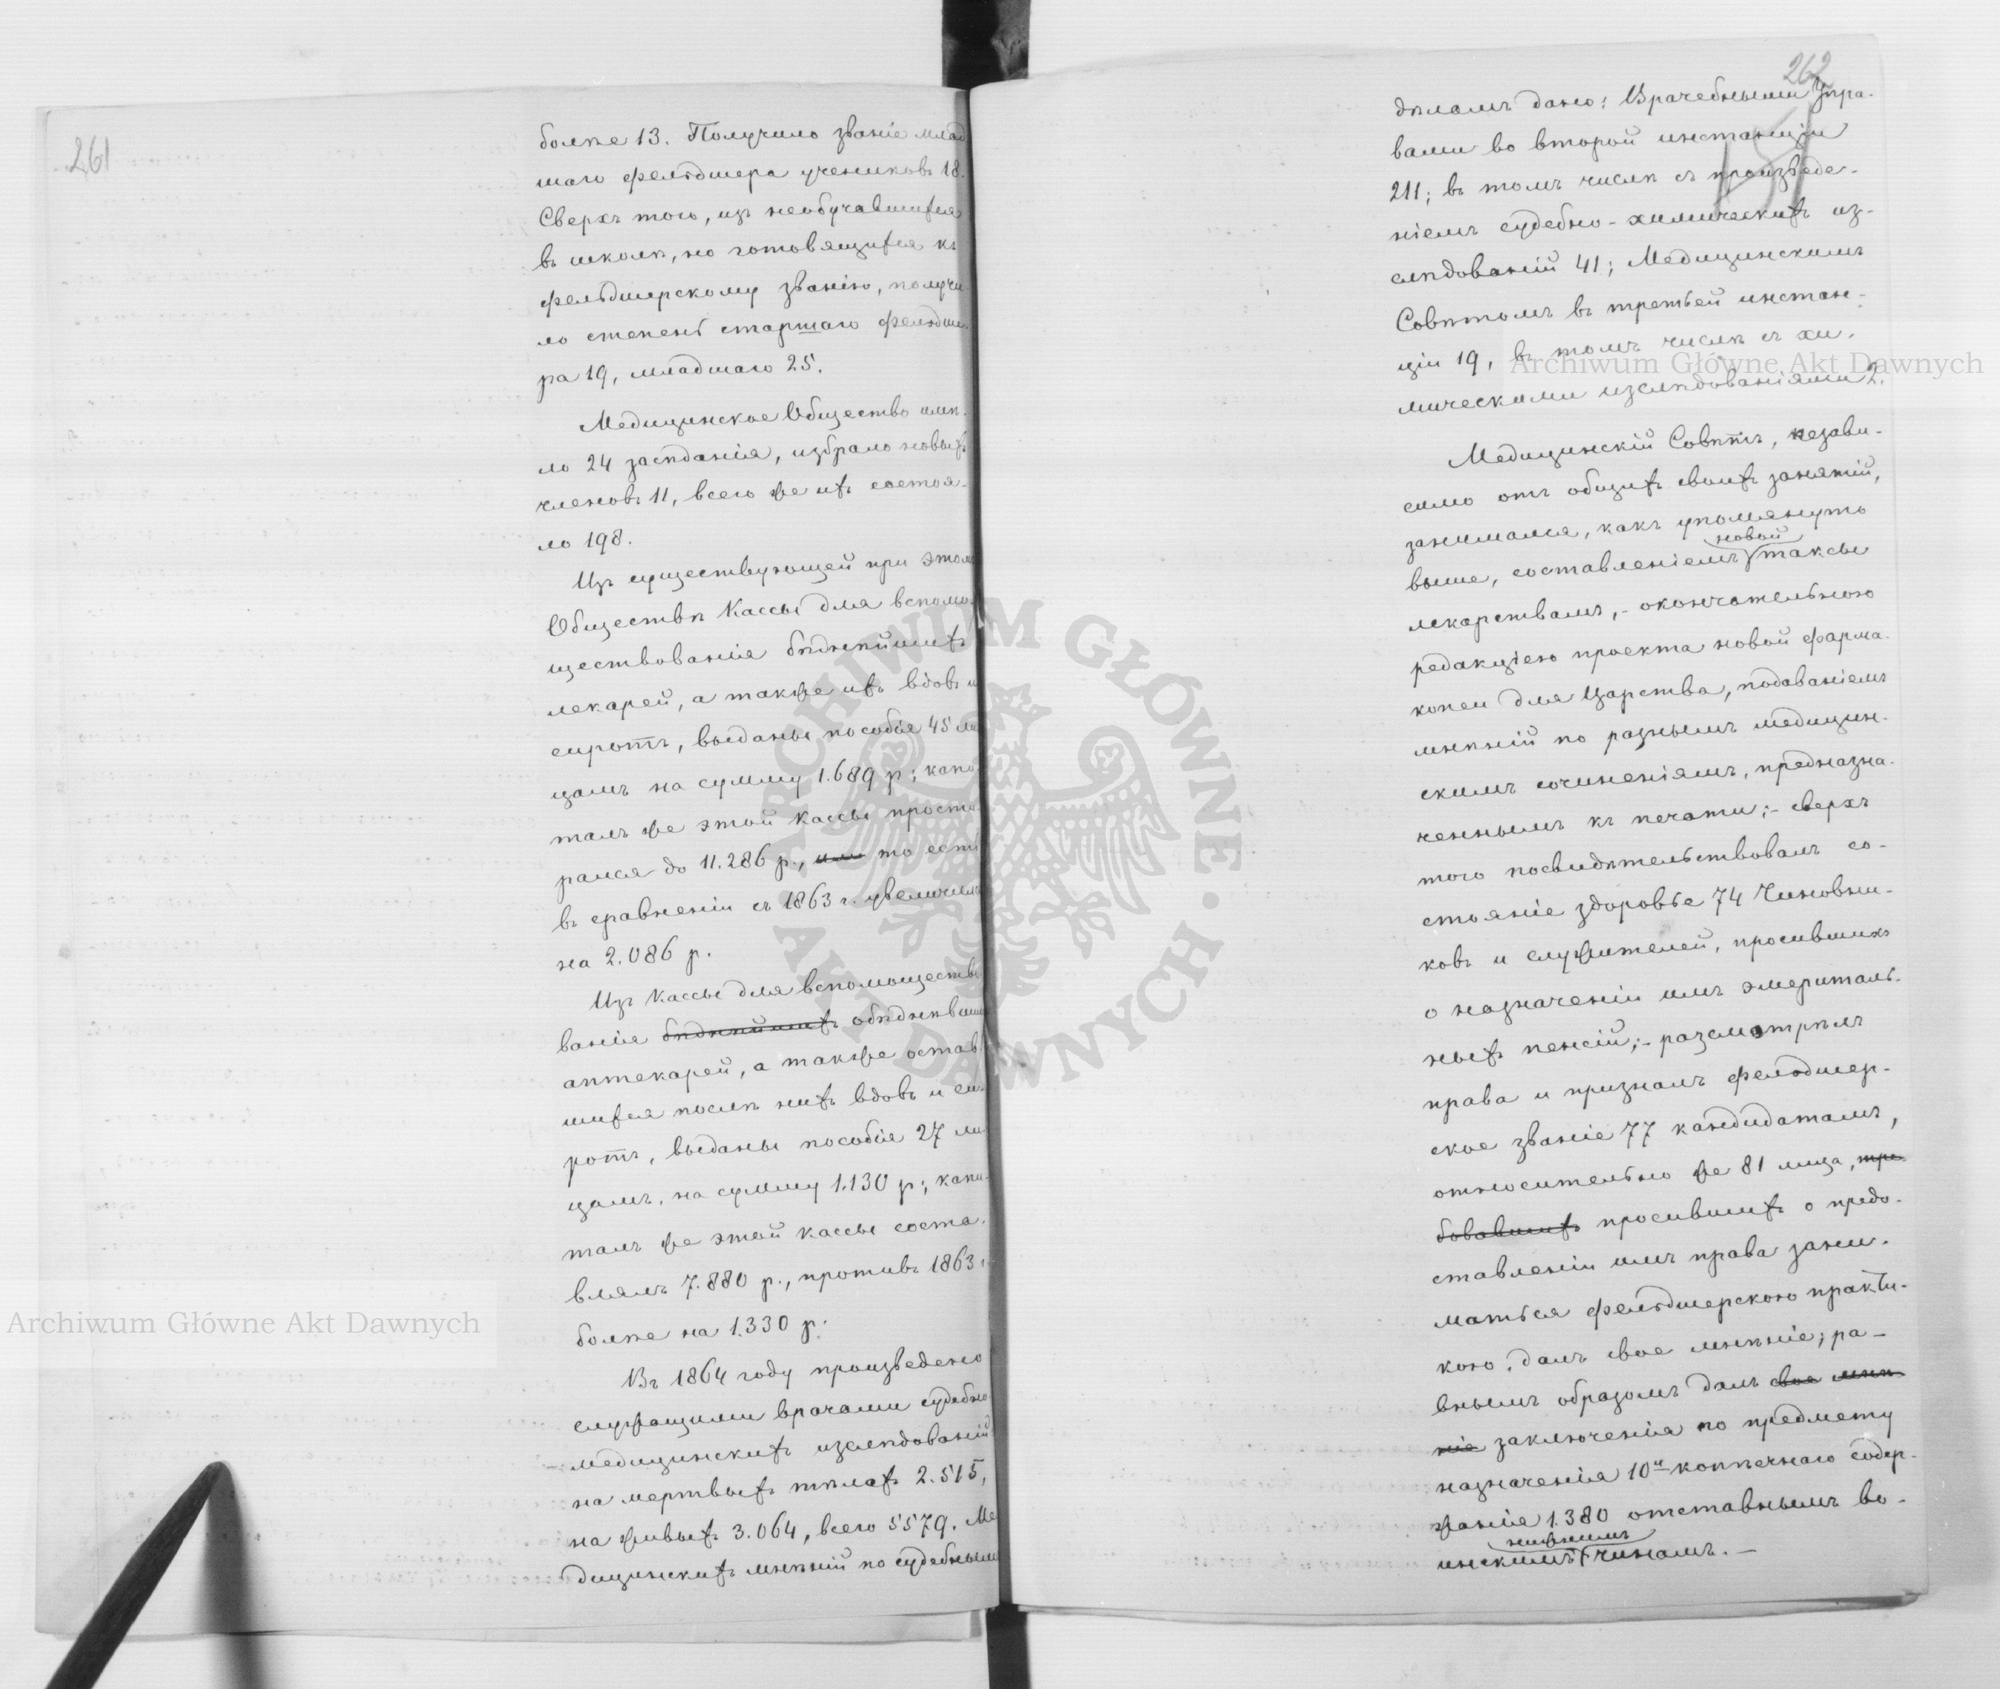 261
болѣе 13. Получило званіе млад
шаго фельдшера учениковъ 18.
Сверхъ того, изъ необучавшихся
въ школѣ, но готовящихся къ
фельдшерскому званію, получи
ло степень старшаго фельдше
ра 19, младшаго 25.
Медицинское Общество имѣ-
ло 24 засѣданія, избрало новыхъ
членовъ 11, всего же ихъ состоя-
ло 198.
Изъ существующей при этомъ
Обществѣ Кассы для вспомо
ществованія бѣднѣйшихъ
лекарей, а также ихъ вдовъ и
сиротъ, выданы пособія 45 ли
цамъ на сумму 1.689 р; капи
талъ же этой Кассы прости
рался до 11.286 р., или то есть
въ сравненіи съ 1863 г. увеличил
на 2.086 р.
Изъ Кассы для вспомощество
ванія бѣднѣйшихъ обѣднѣвших
аптекарей, а также остав
шихся послѣ нихъ вдовъ и си-
ротъ, выданы пособія 27 ли
цамъ, на сумму 1.130 р; капи-
талъ же этой кассы соста-
влялъ 7.880 р., противъ 1863,
болѣе на 1.330 р.
Въ 1864 году произведено
служащими врачами судебно
медицинскихъ изслѣдованій
на мертвыхъ тѣлахъ 2.515,
на живыхъ 3.064, всего 5579. Ме
дицинскихъ мнѣній по судебнымъ
262
дѣламъ дано: Врачебными Упра-
вами во второй инстанціи
211; въ томъ числѣ съ произведе-
ніемъ судебно-химическихъ из-
слѣдованій 41; Медицинскимъ
Совѣтомъ въ третьей инстан-
ціи 19, въ томъ числѣ съ хи-
мическими изслѣдованіями 2.
Медицинскій Совѣтъ, незави-
симо отъ общихъ своихъ занятій,
занимался, какъ упомянуто
новой
выше, составленіемъ таксы
лекарствамъ, - окончательною
редакціею проекта новой фарма-
копеи для Царства, подаваніемъ
мнѣній по разнымъ медицин-
скимъ сочиненіямъ, предназна-
ченнымъ къ печати; - сверхъ
того посвидѣтельствовалъ со-
стояніе здоровье 74 Чиновни-
ковъ и служителей, просившихъ
о назначеніи имъ эмериталь-
ныхъ пенсій; - разсмотрѣлъ
права и призналъ фельдшер-
ское званіе 77 кандидатамъ,
относительно же 81 лица, тре
бовавшихъ просившихъ о предо-
ставленіи имъ права зани-
маться фельдшерскою практи-
кою, далъ свое мнѣніе; ра-
внымъ образомъ далъ свое мнѣ
ніе заключенія по предмету
назначенія 10и копѣечнаго содер-
жанія 1.380 отставнымъ во-
нижнимъ
инскимъ чинамъ. -
Archiwum Główne Akt Dawnych
Archiwum Główne Akt Dawnych
ARCHIWUM GŁÓWNE · AKT DAWNYCH ·